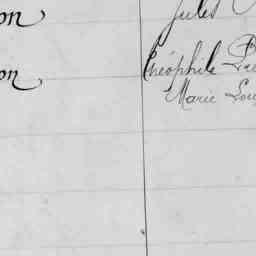 on
Jules
on
Théophile
Marie Lou